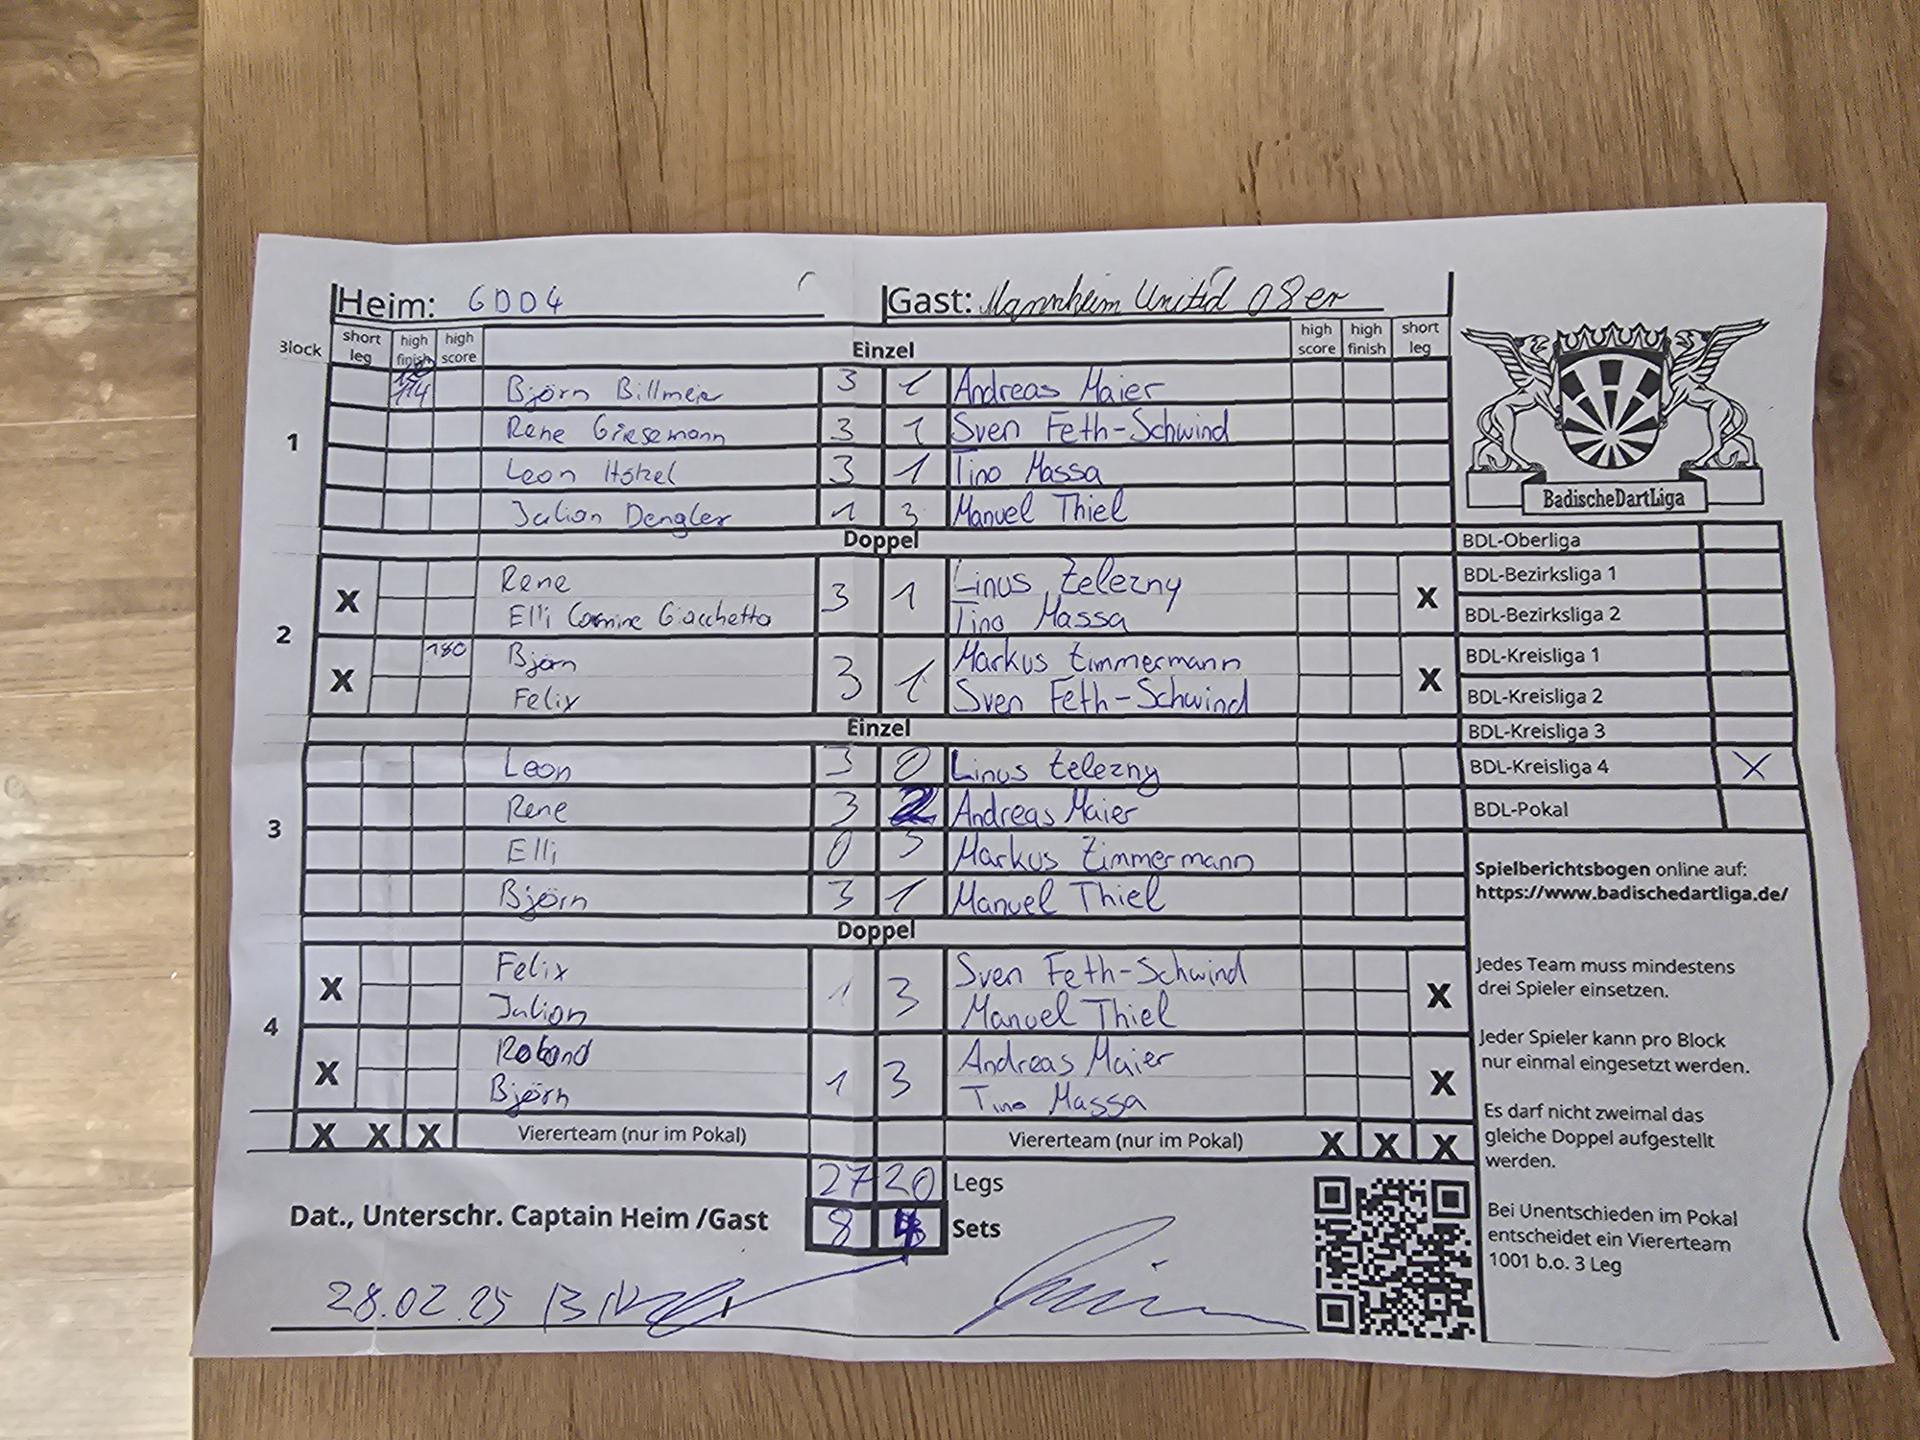 Heim: GDD4 Gast: Mannheim United 08er
Block short leg high finish high score Einzel high score high finish short leg
1
114 Björn Billmeier 3 1 Andreas Maier
Rene Giesemann 3 1 Sven Feth-Schwind
Leon Hötzel 3 1 Tino Massa
Julian Dengler 1 3 Manuel Thiel
Doppel
2
X Rene 3 1 Linus Železny X
Elli Carmine Giacchetta Tino Massa
X 180 Björn 3 1 Markus Zimmermann X
Felix Sven Feth-Schwind
Einzel
3
Leon 3 0 Linus Železny
Rene 3 2 Andreas Maier
Elli 0 3 Markus Zimmermann
Björn 3 1 Manuel Thiel
Doppel
4
X Felix 1 3 Sven Feth-Schwind X
Julian Manuel Thiel
X Roland 1 3 Andreas Maier X
Björn Tino Massa
X X X Viererteam (nur im Pokal) Viererteam (nur im Pokal) X X X
27 20 Legs
Dat., Unterschr. Captain Heim /Gast 8 4 Sets
28.02.25
BadischeDartLiga
BDL-Oberliga
BDL-Bezirksliga 1
BDL-Bezirksliga 2
BDL-Kreisliga 1
BDL-Kreisliga 2
BDL-Kreisliga 3
BDL-Kreisliga 4 X
BDL-Pokal
Spielberichtsbogen online auf:
https://www.badischedartliga.de/
Jedes Team muss mindestens
drei Spieler einsetzen.
Jeder Spieler kann pro Block
nur einmal eingesetzt werden.
Es darf nicht zweimal das
gleiche Doppel aufgestellt
werden.
Bei Unentschieden im Pokal
entscheidet ein Viererteam
1001 b.o. 3 Leg